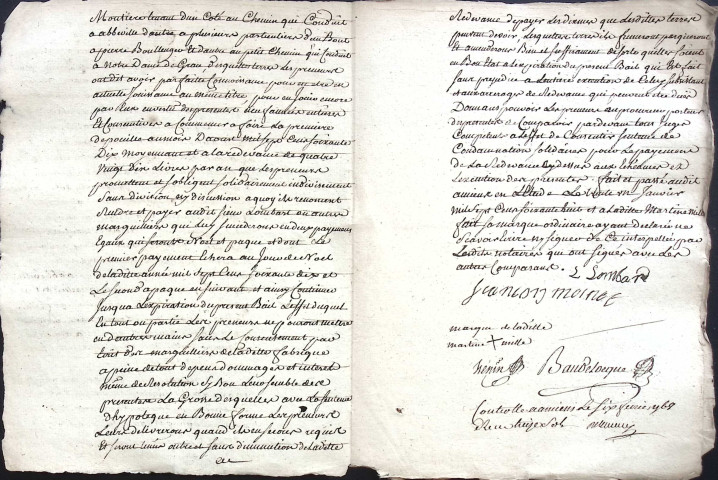 Moutiers tenant d'un Coté au Chemin qui Conduit
a abbeville d'autre a plusieurs particuliers d'un Bout
a pierre Boullenger et d'autre au petit Chemin qui Conduit
a Notre Dame de Grace desquelles terres les preneurs
ont dit avoir parfaitte Connoissance pour en etre en
actuelle jouissance au meme titre, pour en jouir encore
par eux en vertu des presentes neuf années entieres
et Consecutives a Commencer a faire la premiere
depouille au mois D'aoust mil sept Cens soixante
Dix moyennant et a la redevance de quatre
Vingt dix Livres par an que les preneurs
promettent et s'obligent solidairement indivisément
sans division ny discussion a quoy ils renoncent
Rendre et payer audit sieur Lombart ou autres
marguilliers que luy succedront en deux payemens
Egaux qui seront Noel et paque et dont Le
premier payement Echera au Jour de Noel
de laditte année mil sept Cens soixante dix et
Le second a paque en suivant et ainsy Continuer
Jusqu'a L'expiration du present Bail L'effet duquel
En tout ou partie Les preneurs ne pouront mettre
en d'autre mains sans le Consentement par
Ecrit des marguilliers de laditte fabrique
a peine de tout depens dommages et interet
même de Resolution si Bon leur semble des
presentes La Grosse desquelles avec la sentence
d'hypoteque en Bonne forme Les preneurs
Leurs delivreront quand ils en seront requis
Et seront tenus outre et sans diminution de laditte
Redevance de payer Les Dixmes que Lesdittes terres
peuvent devoir, lesquelles terres ils fumeront
et amenderont Bien et suffisament de sorte qu'elles soient
en Bon Etat a l'expiration du present Bail qui Est fait
sans prejudice a L'entiere execution de Celuy subsistant
et aux arrerages de Redevance qui peuvent etre dus
Domans pouvoir Les preneurs au premier porteur
du presentes de Comparoir pardevant tous Juges
Competens a L'effet de Consentir sentence de
Condamnation solidaire pour Le payement
de La Redevance Cy dessus aux Echeances et
L'execution des presentes. fait et passé audit
amiens en L'etude Le Vingt un Janvier
mil sept Cens soixante huit et a laditte Martine mille
fait sa marque ordinaire ayant declaré ne
scavoir Ecrire ny signer de Ce interpellée par
Lesdits notaires qui ont signés avec Les
autres Comparans.
L Lombard
marque de laditte
martine + mille
Baudelocque
Controllé a amiens Le six fevrier 1768